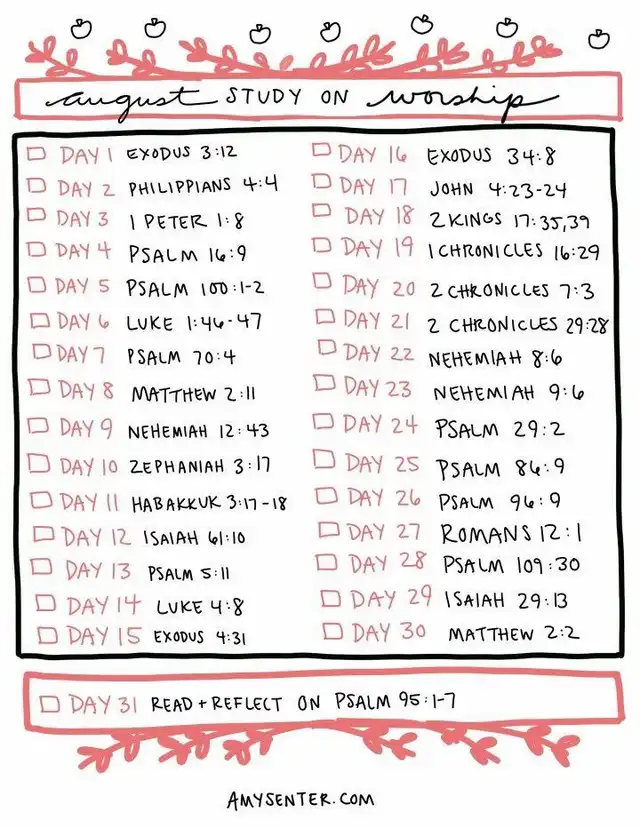 august STUDY ON worship
DAY 1 EXODUS 3:12
DAY 2 PHILIPPIANS 4:4
DAY 3 1 PETER 1:8
DAY 4 PSALM 16:9
DAY 5 PSALM 100:1-2
DAY 6 LUKE 1:46-47
DAY 7 PSALM 70:4
DAY 8 MATTHEW 2:11
DAY 9 NEHEMIAH 12:43
DAY 10 ZEPHANIAH 3:17
DAY 11 HABAKKUK 3:17-18
DAY 12 ISAIAH 61:10
DAY 13 PSALM 5:11
DAY 14 LUKE 4:8
DAY 15 EXODUS 4:31
DAY 16 EXODUS 34:8
DAY 17 JOHN 4:23-24
DAY 18 2 KINGS 17:35,39
DAY 19 1 CHRONICLES 16:29
DAY 20 2 CHRONICLES 7:3
DAY 21 2 CHRONICLES 29:28
DAY 22 NEHEMIAH 8:6
DAY 23 NEHEMIAH 9:6
DAY 24 PSALM 29:2
DAY 25 PSALM 86:9
DAY 26 PSALM 96:9
DAY 27 ROMANS 12:1
DAY 28 PSALM 109:30
DAY 29 ISAIAH 29:13
DAY 30 MATTHEW 2:2
DAY 31 READ + REFLECT ON PSALM 95:1-7
AMYSENTER.COM